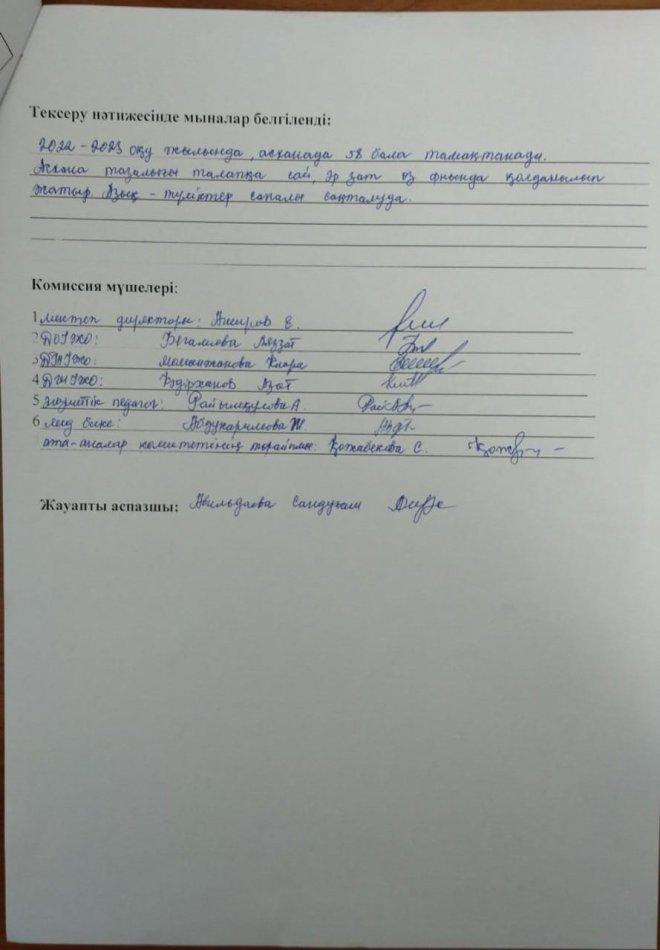 Тексеру нәтижесінде мыналар белгіленді:
2022-2023 оқу жылында, асханада 58 бала тамақтанады.
Асхана тазалығы талапқа сай, әр зат өз орнында қолданылып
жатыр. Азық-түліктер сапалы сақталуда.
Комиссия мүшелері:
1 мектеп директоры: Е.
2 ДОІЖО: Бегалиева Ләззат
3 ДТІЖО: Момынжанова Клара
4 ДШІЖО: Қадірханов Азат
5 әлеуметтік педагог: Райымқулова А.
6 мед бике: Абдукаримова Ж
ата-аналар комитетінің төрайымы: Қожабекова С.
Жауапты аспазшы: Абильдаева Сандуғаш